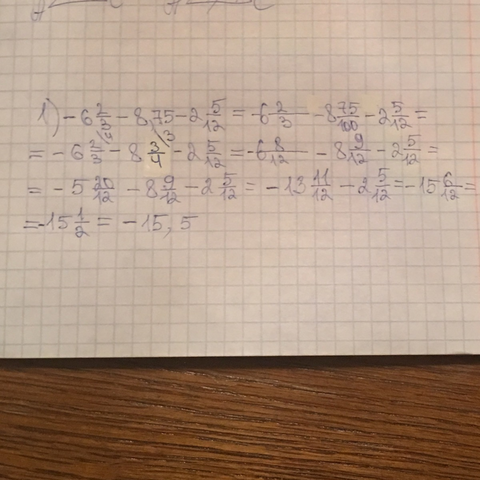 1) -6 2/3 - 8,75 - 2 5/12 = -6 2/3 - 8 75/100 - 2 5/12 =
= -6 2/3 \4 - 8 3/4 \3 - 2 5/12 = -6 8/12 - 8 9/12 - 2 5/12 =
= -5 20/12 - 8 9/12 - 2 5/12 = -13 11/12 - 2 5/12 = -15 6/12 =
= -15 1/2 = -15,5